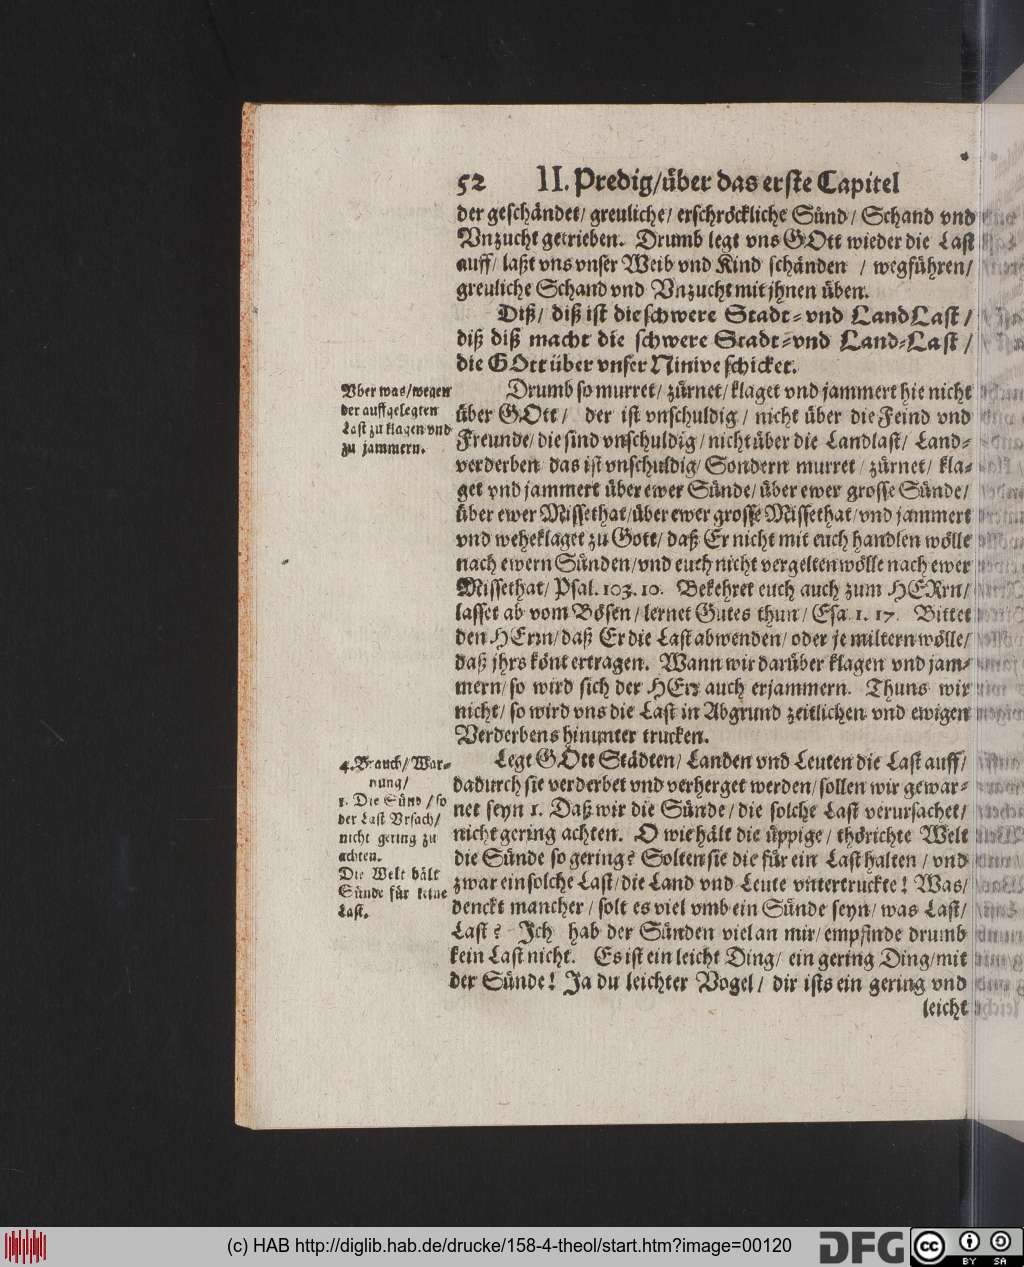 52 II. Predig/über das erste Capitel
der geschändet/ greuliche/ erschröckliche Sünd/ Schand vnd
Vnzucht getrieben. Drumb legt vns GOtt wieder die Last
auff/ laßt vns vnser Weib vnd Kind schänden / wegführen/
greuliche Schand vnd Vnzucht mit jhnen üben.
Diß/ diß ist die schwere Stadt-vnd LandLast/
diß diß macht die schwere Stadt-vnd Land-Last /
die GOtt über vnser Ninive schicket.
Vber was/wegen
der auffgelegten
Last zu klagen vnd
zu jammern.
Drumb so murret/ zürnet/ klaget vnd jammert hie nicht
über GOtt/ der ist vnschuldig / nicht über die Feind vnd
Freunde/ die sind vnschuldig/ nicht über die Landlast/ Land-
verderben/ das ist vnschuldig/ Sondern murret / zürnet/ kla-
get vnd jammert über ewer Sünde/ über ewer grosse Sünde/
über ewer Missethat/über ewer grosse Missethat/vnd jammert
vnd weheklaget zu Gott/ daß Er nicht mit euch handlen wölle
nach ewern Sünden/vnd euch nicht vergelten wölle nach ewer
Missethat/ Psal. 103. 10. Bekehret euch auch zum HERrn/
lasset ab vom Bösen/ lernet Gutes thun/ Esa. 1. 17. Bittet
den HErrn/ daß Er die Last abwenden/ oder je miltern wölle/
daß jhrs könt ertragen. Wann wir darüber klagen vnd jam-
mern/ so wird sich der HErr auch erjammern. Thuns wir
nicht/ so wird vns die Last in Abgrund zeitlichen vnd ewigen
Verderbens hinunter trucken.
4. Brauch/ War-
nung/
1. Die Sünd / so
der Last Vrsach/
nicht gering zu
achten.
Die Welt hält
Sünde für keine
Last.
Legt GOtt Städten/ Landen vnd Leuten die Last auff/
dadurch sie verderbet vnd verherget werden/ sollen wir gewar-
net seyn 1. Daß wir die Sünde/ die solche Last verursachet/
nicht gering achten. O wie hält die üppige/ thörichte Welt
die Sünde so gering? Solten sie die für ein Last halten / vnd
zwar ein solche Last/ die Land vnd Leute vntertruckte! Was/
denckt mancher / solt es viel vmb ein Sünde seyn/ was Last/
Last? Jch hab der Sünden viel an mir/ empfinde drumb
kein Last nicht. Es ist ein leicht Ding/ ein gering Ding/mit
der Sünde! Ja du leichter Vogel/ dir ists ein gering vnd
leicht
(c) HAB http://diglib.hab.de/drucke/158-4-theol/start.htm?image=00120
DFG
cc BY SA